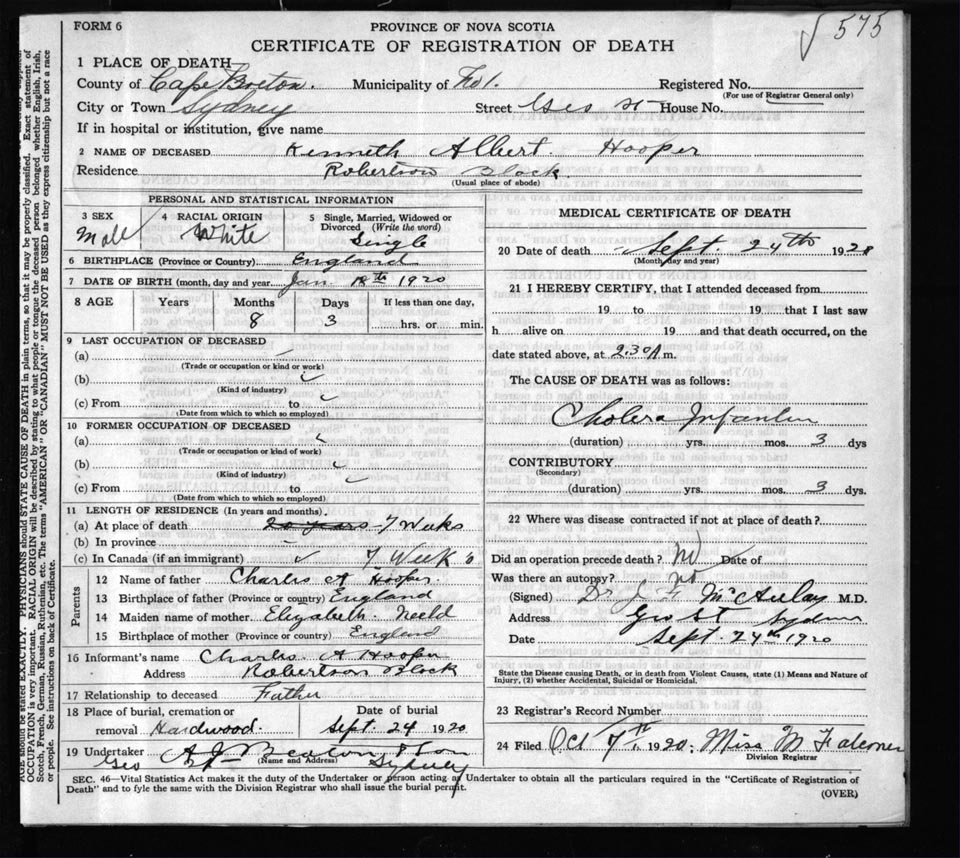 FORM 6
PROVINCE OF NOVA SCOTIA
575
CERTIFICATE OF REGISTRATION OF DEATH
1 PLACE OF DEATH—
County of Cape Breton. Municipality of No 1. Registered No.
(For use of Registrar General only)
City or Town Sydney Street Geo St House No.
If in hospital or institution, give name
2 NAME OF DECEASED Kenneth Albert Hooper
Residence Robertson Block.
(Usual place of abode)
PERSONAL AND STATISTICAL INFORMATION
3 SEX Male
4 RACIAL ORIGIN White
5 Single, Married, Widowed or Divorced (Write the word) Single
6 BIRTHPLACE (Province or Country) England
7 DATE OF BIRTH (month, day and year) Jan 18th 1920
8 AGE Years Months Days If less than one day,
8 3 hrs. or min.
9 LAST OCCUPATION OF DECEASED
(a)
(Trade or occupation or kind or work)
(b)
(Kind of industry)
(c) From to
(Date from which to which so employed)
10 FORMER OCCUPATION OF DECEASED
(a)
(Trade or occupation or kind of work)
(b)
(Kind of industry)
(c) From to
(Date from which to which so employed)
11 LENGTH OF RESIDENCE (In years and months).
(a) At place of death 20 years 7 Weeks
(b) In province
(c) In Canada (if an immigrant) 7 Week's
Parents
12 Name of father Charles A Hooper.
13 Birthplace of father (Province or country) England
14 Maiden name of mother. Elizabeth
15 Birthplace of mother (Province or country) England
16 Informant's name Charles A Hooper
Address Robertson Block
17 Relationship to deceased Father
18 Place of burial, cremation or removal Hardwood.
Date of burial Sept 24 1920
19 Undertaker A J Beaton & Son
(Name and Address)
Geo St Sydney
MEDICAL CERTIFICATE OF DEATH
20 Date of death Sept. 24th 1920
(Month, day and year)
21 I HEREBY CERTIFY, that I attended deceased from
19 to 19 that I last saw
h alive on 19 and that death occurred, on the
date stated above, at 2.30 A.m.
The CAUSE OF DEATH was as follows:
Cholera Infantum
(duration) yrs. mos. 3 dys
CONTRIBUTORY
(Secondary)
(duration) yrs. mos. 3 dys.
22 Where was disease contracted if not at place of death?
Did an operation precede death? No Date of
Was there an autopsy? no
(Signed) Dr J. F McAulay M.D.
Address Geo St Sydney
Date Sept. 24th 1920
State the Disease causing Death, or in death from Violent Causes, state (1) Means and Nature of Injury, (2) whether Accidental, Suicidal or Homicidal.
23 Registrar's Record Number
24 Filed Oct 7th, 1920; Miss M Falconer
Division Registrar
SEC. 46—Vital Statistics Act makes it the duty of the Undertaker or person acting as Undertaker to obtain all the particulars required in the "Certificate of Registration of
Death" and to fyle the same with the Division Registrar who shall issue the burial permit.
(OVER)
AGE should be stated EXACTLY. PHYSICIANS should STATE CAUSE OF DEATH in plain terms, so that it may be properly classified. Exact statement of
OCCUPATION is very important. RACIAL ORIGIN will be described by stating to what people or tongue the deceased person belonged whether English, Irish,
Scotch, French, German, Russian, Ruthenian, etc. The terms "AMERICAN" OR "CANADIAN" MUST NOT BE USED as they express citizenship but not a race
or people. See instructions on back of Certificate.